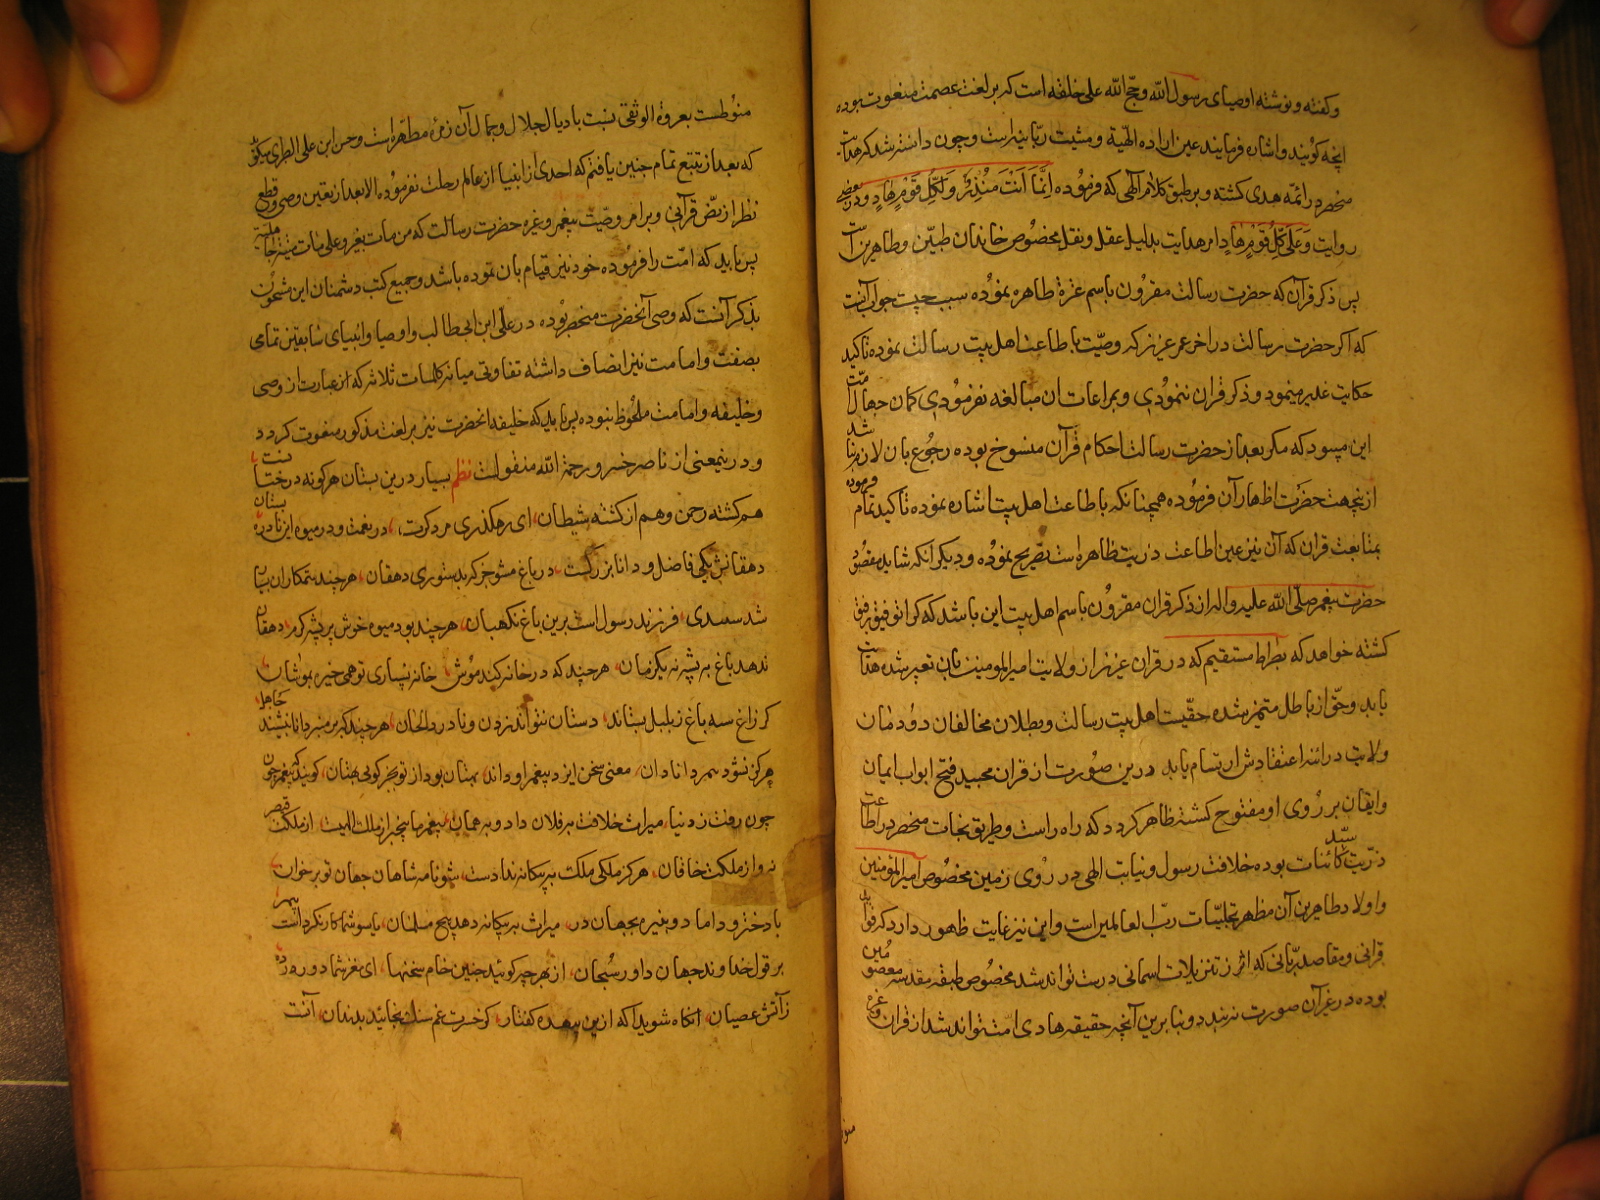 وگفته و نوشته اوصیای رسول الله و حجج الله علی خلقه است که بر لغت عصمت منعوت بوده
انچه کویند و اشاره فرمایند عین اراده الهیه و مشیت ربانیه است و چون دانسته شد که هدایت
منحصر در ائمه هدی کشته و بر طبق کلام الهی که فرموده انما انت منذر ولکل قوم هاد و در بعضی
روایت وعلی کل قوم هاد امر هدایت بدلیل عقل و نقل مخصوص خاندان طیبین و طاهرین است
پس ذکر قرآن که حضرت رسالت مقرون باسم عترة طاهره نموده سبب چیست جواب آنست
که اکر حضرت رسالت در اخر عمر عزیز که وصیت باطاعت اهل بیت رسالت نموده تاکید
حکایت غدیر مینمود و ذکر قرآن ننمودی و بمراعات ان مبالغه نفرمودی کمان جهال امت
این میبود که مکر بعد از حضرت رسالت احکام قرآن منسوخ بوده رجوع بان لازم نباشد
ازینجهت حضرت اظهار آن فرموده همچنانکه باطاعت اهل بیت اشاره نموده تاکید تمام فرموده
بمتابعت قران که آن نیز عین اطاعت ذریت طاهره است تصریح نموده و دیکر انکه شاید مقصود
حضرت پیغمبر صلی الله علیه واله از ذکر قران مقرون باسم اهل بیت این باشد که کرا توفیق رفیق
کشته خواهد که بصراط مستقیم که در قران عزیز از ولایت امیرالمومنین بان تعبیر شده هدایت
یابد و حق از باطل متمیز شده حقیت اهل بیت رسالت و بطلان مخالفان دودمان
ولایت در ائینه اعتقادش ارتسام یابد درین صورت از قران مجید فتح ابواب ایمان
وایقان بر روی او مفتوح کشته ظاهر کردد که راه راست و طریق نجات منحصر در اطاعت
ذریت سید کائنات بوده خلافت رسول و نیابت الهی در روی زمین مخصوص امیرالمؤمنین
و اولاد طاهرین آن مظهر تجلیات رب العالمین است و این نیز غایت ظهور دارد که فواید
قرانی و مقاصد ربانی که اثر تنزیلات اسمانی درست تواند شد مخصوص طبقه مقدسه معصومین
بوده در غیر آن صورت نه بندد و بنابرین آنچه حقیقه هادی امت تواند شد از قران وغیره
منوطست بعروة الوثقی نسبت باذیال جلال و جمال آن زمرهٔ مطهره است و حسن ابن علی الطبری میکوید
که بعد از تتبع تمام چنین یافتم که احدی از انبیا از عالم رحلت نفرموده الا بعد از تعین وصی و قطع
نظر از نص قرآنی و بر امر وصیت پیغمبر و غیره حضرت رسالت که من مات بغیر وصی مات میتة جاهلیة
پس باید که امت را فرموده خود نیز قیام بان نموده باشد و جمیع کتب دشمنان این مشحون
بذکر آنست که وصی آنحضرت منحصر بوده در علی ابن ابی طالب و اوصیا و انبیای سابقین تمامی
بصفت و امامت نیز اتصاف داشته تفاوتی میانه کلمات ثلاثه که عبارت از وصی
و خلیفه و امامت ملحوظ نبوده پس باید که خلیفه انحضرت نیز بر لغت مذکور منعوت کردد
و درینمعنی از ناصر خسرو رحمة الله منقولست نظم بسیار درین بستان هرکونه درختست
هم کشته رحمن و هم از کشته شیطان، ای رهکذری مرد کرت، در نعمت و در میوه این نادره بستان
دهقانش یکی فاضل و دانا بزرکست، در باغ مشو جز که بدستوری دهقان، هر چند ستمکاران
فرزند رسول است برین باغ نکهبان، هر چند بود میوه خوش بر پشه کرم، دهقان
ندهد باغ به پشه نه بکرمان، هر چند که در خانه کند موش خانه نسپاری تو همی خیره بموشان
کر زاغ سیه باغ ز بلبل بستاند، دستان نتواند زدن و نادره الحان، هر چند که بر منبر دانا بنشیند جاهل
هرکز نشود همبر دانا نادان، معنی سخن ایزد پیغمبر او داند، بهتان بود از تو بجز کوئی بهتان، کویند که پیغمبر چون
چون رفت ز دنیا، میراث خلافت به فلان داد و به همان، پیغمبر ما بیخبر از ملک الهیست، از مملکت قیصر
نه و از مملکت خاقان، هرکز ملکی ملکت به بیکانه ندادست، شو نامه شاهان جهان تو برخوان
با دختر و داماد و نبیره بجهان در، میراث به بیکانه دهد هیچ مسلمان،
بر قول خداوند جهان داور سبحان، از بهر چه کوئید چنین خام سخنها،
ز آتش عصیان، انکاه شوید اکه ازین بیهده کفتار، کز حسرت و غم سنک بخائید بدندان، آنست